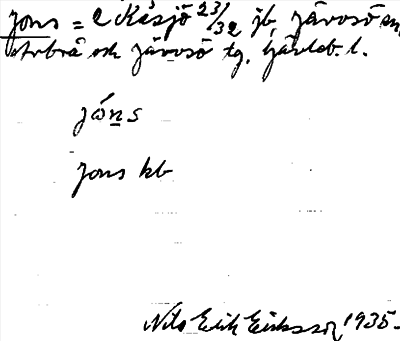 Jons = 2 Kåsjö 23/32 jb, Järvsö sn,
strbrå och Järvsö tg, Gävleb. l.
jȯns
Jons kb
Nils Erik Eriksson 1935.